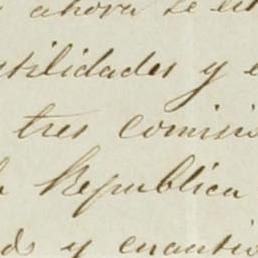 ahora se es
tilidades y e
tres comisio
Republica
y cuantio